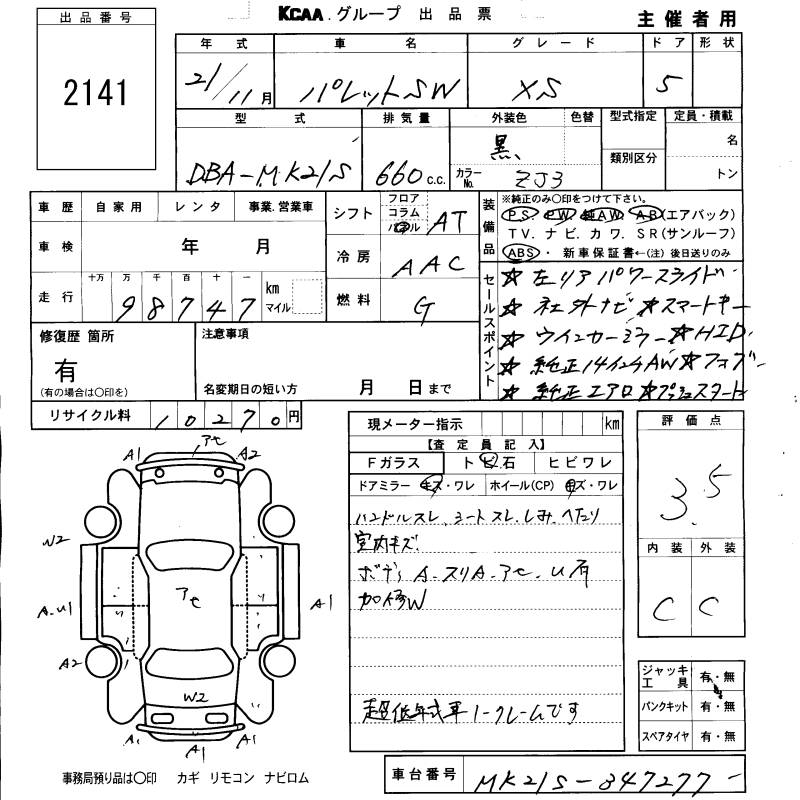 KCAA.グループ 出品票
主催者用
出品番号
2141
年式 車名 グレード ドア 形状
21/11月 パレットSW XS 5
型式 排気量 外装色 色替 型式指定 定員・積載
DBA-MK21S 660c.c. 黒 名
類別区分
カラーNo. ZJ3 トン
車歴 自家用 レンタ 事業.営業車
シフト フロア コラム AT
車検 年 月
冷房 AAC
走行 十万 万 千 百 十 一
98747 km マイル
燃料 G
装備品
※純正のみ〇印をつけて下さい。
PS. PW 純AW. AB(エアバック)
TV. ナビ. カワ. SR(サンルーフ)
ABS・新車保証書←(注)後日送りのみ
セールスポイント
☆左リアパワースライド
☆社外ナビ ☆スマートキー
☆ウインカーミラー ☆HID
☆純正14インチAW ☆フォグ
☆純正エアロ ☆プッシュスタート
修復歴 箇所
有
(有の場合は〇印を)
注意事項
名変期日の短い方 月 日まで
リサイクル料 10270円
現メーター指示 km
【査定員記入】
Fガラス トビ石 ヒビワレ
ドアミラー キズ・ワレ ホイール(CP) キズ・ワレ
ハンドルスレ、シートスレ.しみ.へたり
室内キズ
ボディ A.スリA.アセ.U有
加修W
超低年式車ノークレームです
評価点
3.5
内装 外装
C C
A1 アセ A2
W2
A.U1 アセ A1
A2
W2
A1 A1 A1
ジャッキ工具 有・無
パンクキット 有・無
スペアタイヤ 有・無
事務局預り品は〇印 カギ リモコン ナビロム
車台番号 MK21S-847277